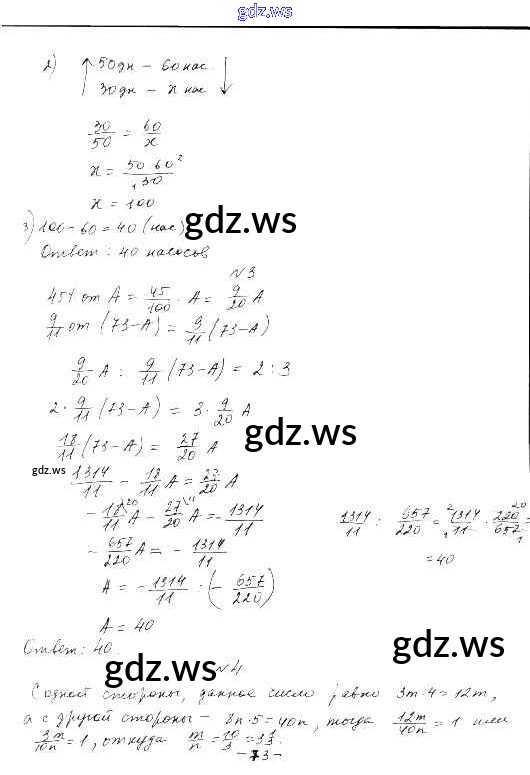 gdz.ws
2) ↑ 50 дн – 60 нас. ↓
30 дн – x нас
30/50 = 60/x
x = 50 60²/₁30
x = 100
3) 100 – 60 = 40 (нас)
gdz.ws
Ответ: 40 насосов
№3
45% от A = 45/100 · A = 9/20 A
9/11 от (73–A) = 9/11 (73–A)
9/20 A : 9/11 (73–A) = 2 : 3
2 · 9/11 (73–A) = 3 · 9/20 A
18/11 (73–A) = 27/20 A
gdz.ws
gdz.ws
1314/11 – 18/11 A = 27/20 A
– 18/11 \20 A – 27/20 \11 A = – 1314/11
1314/11 : 657/220 = ²1314/₁11 · 220²⁰/657₁ =
– 657/220 A = – 1314/11
= 40
A = – 1314/11 : (– 657/220)
A = 40
Ответ: 40.
gdz.ws
gdz.ws
№4
С одной стороны, данное число равно 3m·4 = 12m,
а с другой стороны – 8n·5 = 40n, тогда 12m/40n = 1 или
3m/10n = 1, откуда m/n = 10/3 = 3 1/3.
– 73 –